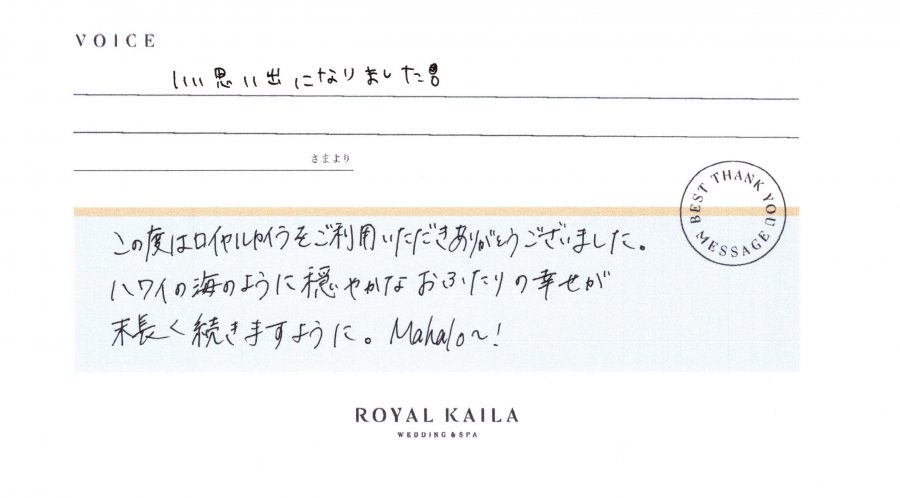 VOICE
いい思い出になりました!!
さまより
BEST THANK YOU MESSAGE
この度はロイヤルカイラをご利用いただきありがとうございました。
ハワイの海のように穏やかなおふたりの幸せが
末長く続きますように。Mahalo〜!
ROYAL KAILA
WEDDING & SPA